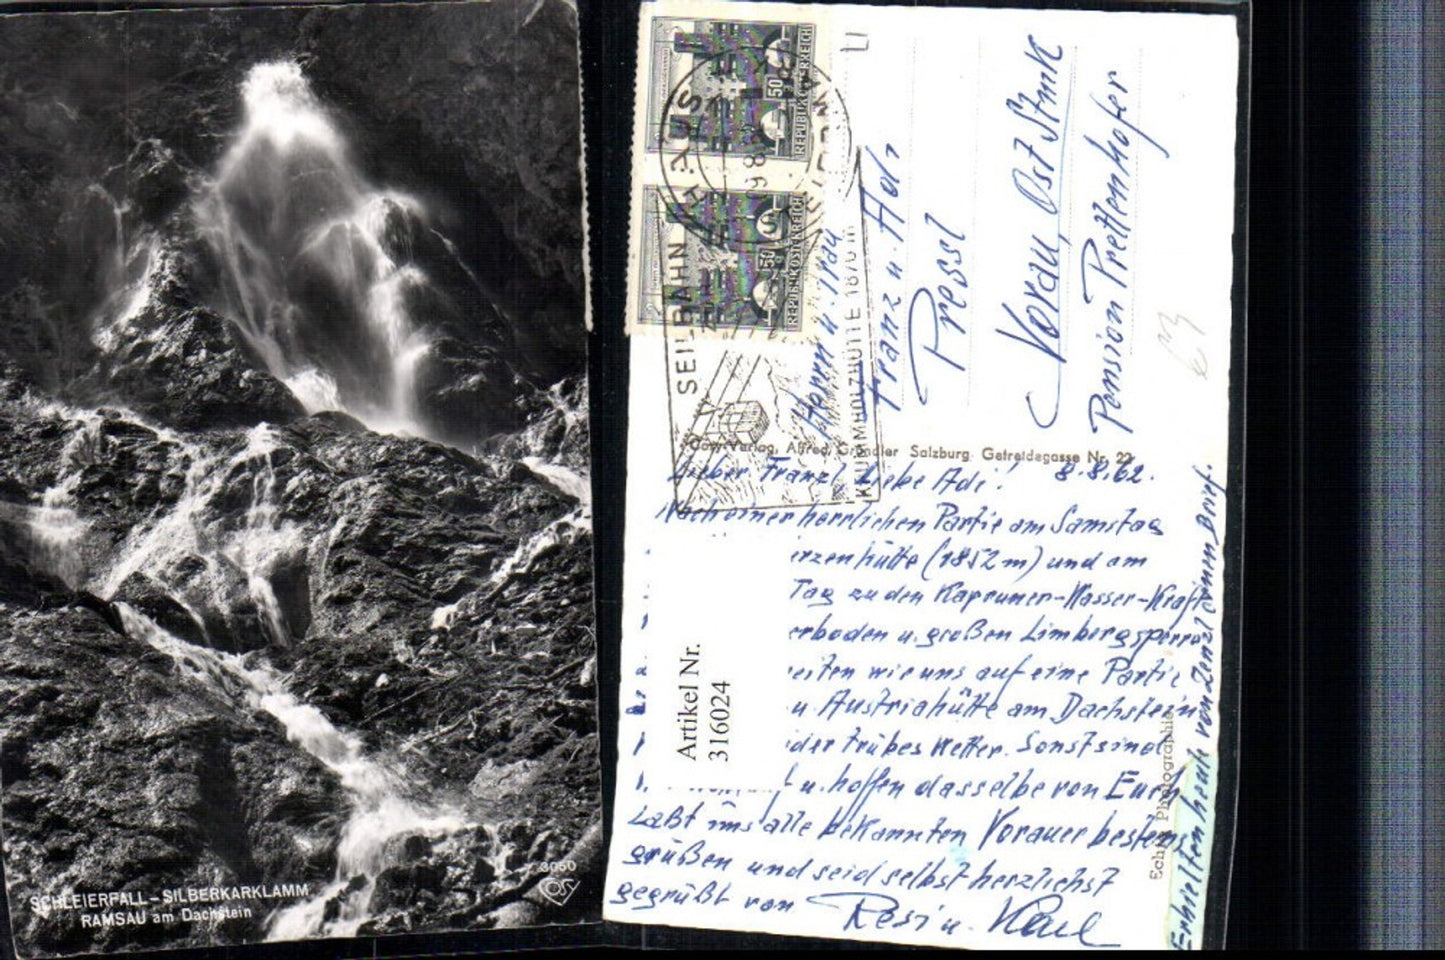 SCHLEIERFALL - SILBERKARKLAMM
RAMSAU am Dachstein
3050
OSV
50
REPUBLIK ÖSTERREICH
50
REPUBLIK ÖSTERREICH
SEILBAHN
KRUMMHOLZHÜTTE 1870 m
Herrn u. Frau
Franz u. Adi
Pressl
Vorau, Ost Stmk
Pension Prettenhofer
63
Verlag, Alfred Gründler Salzburg Getreidegasse Nr. 22
Echte Photographie
Lieber Franzl, Liebe Adi! 8.8.62.
Nach einer herrlichen Partie am Samstag
erzenhütte (1852 m) und am
Tag zu den Kapruner-Wasser-Kraft
erboden u. großen Limbergsperre
eiten wir uns auf eine Partie
u. Austriahütte am Dachstein
ider trübes Wetter. Sonst sind
u. hoffen dasselbe von Euch
Laßt uns alle bekannten Vorauer bestens
grüßen und seid selbst herzlichst
gegrüßt von Resi u. Karl
Erhielten heute von Zenzl einen Brief.
Artikel Nr.
316024